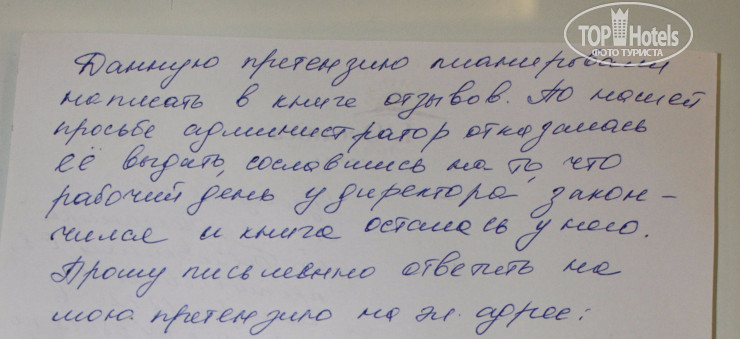 TOP Hotels
ФОТО ТУРИСТА
Данную претензию планировали
написать в книге отзывов. По нашей
просьбе администратор отказалась
её выдать, сославшись на то, что
рабочий день у директора закон-
чился и книга осталась у него.
Прошу письменно ответить на
мою претензию на эл. адрес: